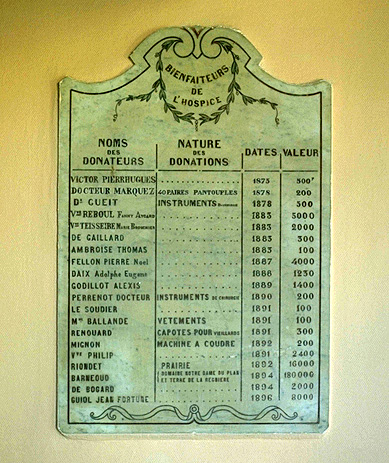 BIENFAITEURS
DE
L'HOSPICE
NOMS DES DONATEURS NATURE DES DONATIONS DATES VALEUR
VICTOR PIERRHUGUES 1875 500F
DOCTEUR MARQUEZ 40 PAIRES PANTOUFLES 1878 200
Dr GUEIT INSTRUMENTS 1878 500
Vve REBOUL FANNY 1883 5000
Vve TEISSEIRE MARIE 1883 2000
DE GAILLARD 1883 300
AMBROISE THOMAS 1883 100
FELLON PIERRE Noel 1887 4000
DAIX Adolphe Eugene 1888 1230
GODILLOT ALEXIS 1889 1400
PERRENOT DOCTEUR INSTRUMENTS DE CHIRURGIE 1890 200
LE SOUDIER 1891 100
Me BALLANDE VETEMENTS 1891 100
RENOUARD CAPOTES POUR VIEILLARDS 1891 300
MIGNON MACHINE A COUDRE 1892 200
Vve PHILIP 1891 2400
RIONDET PRAIRIE 1892 16000
BARNEOUD DOMAINE NOTRE DAME DU PLAN ET TERRE DE LA 1894 180000
DE BOGARD 1894 2000
GUIOL JEAN FORTUNE 1896 8000